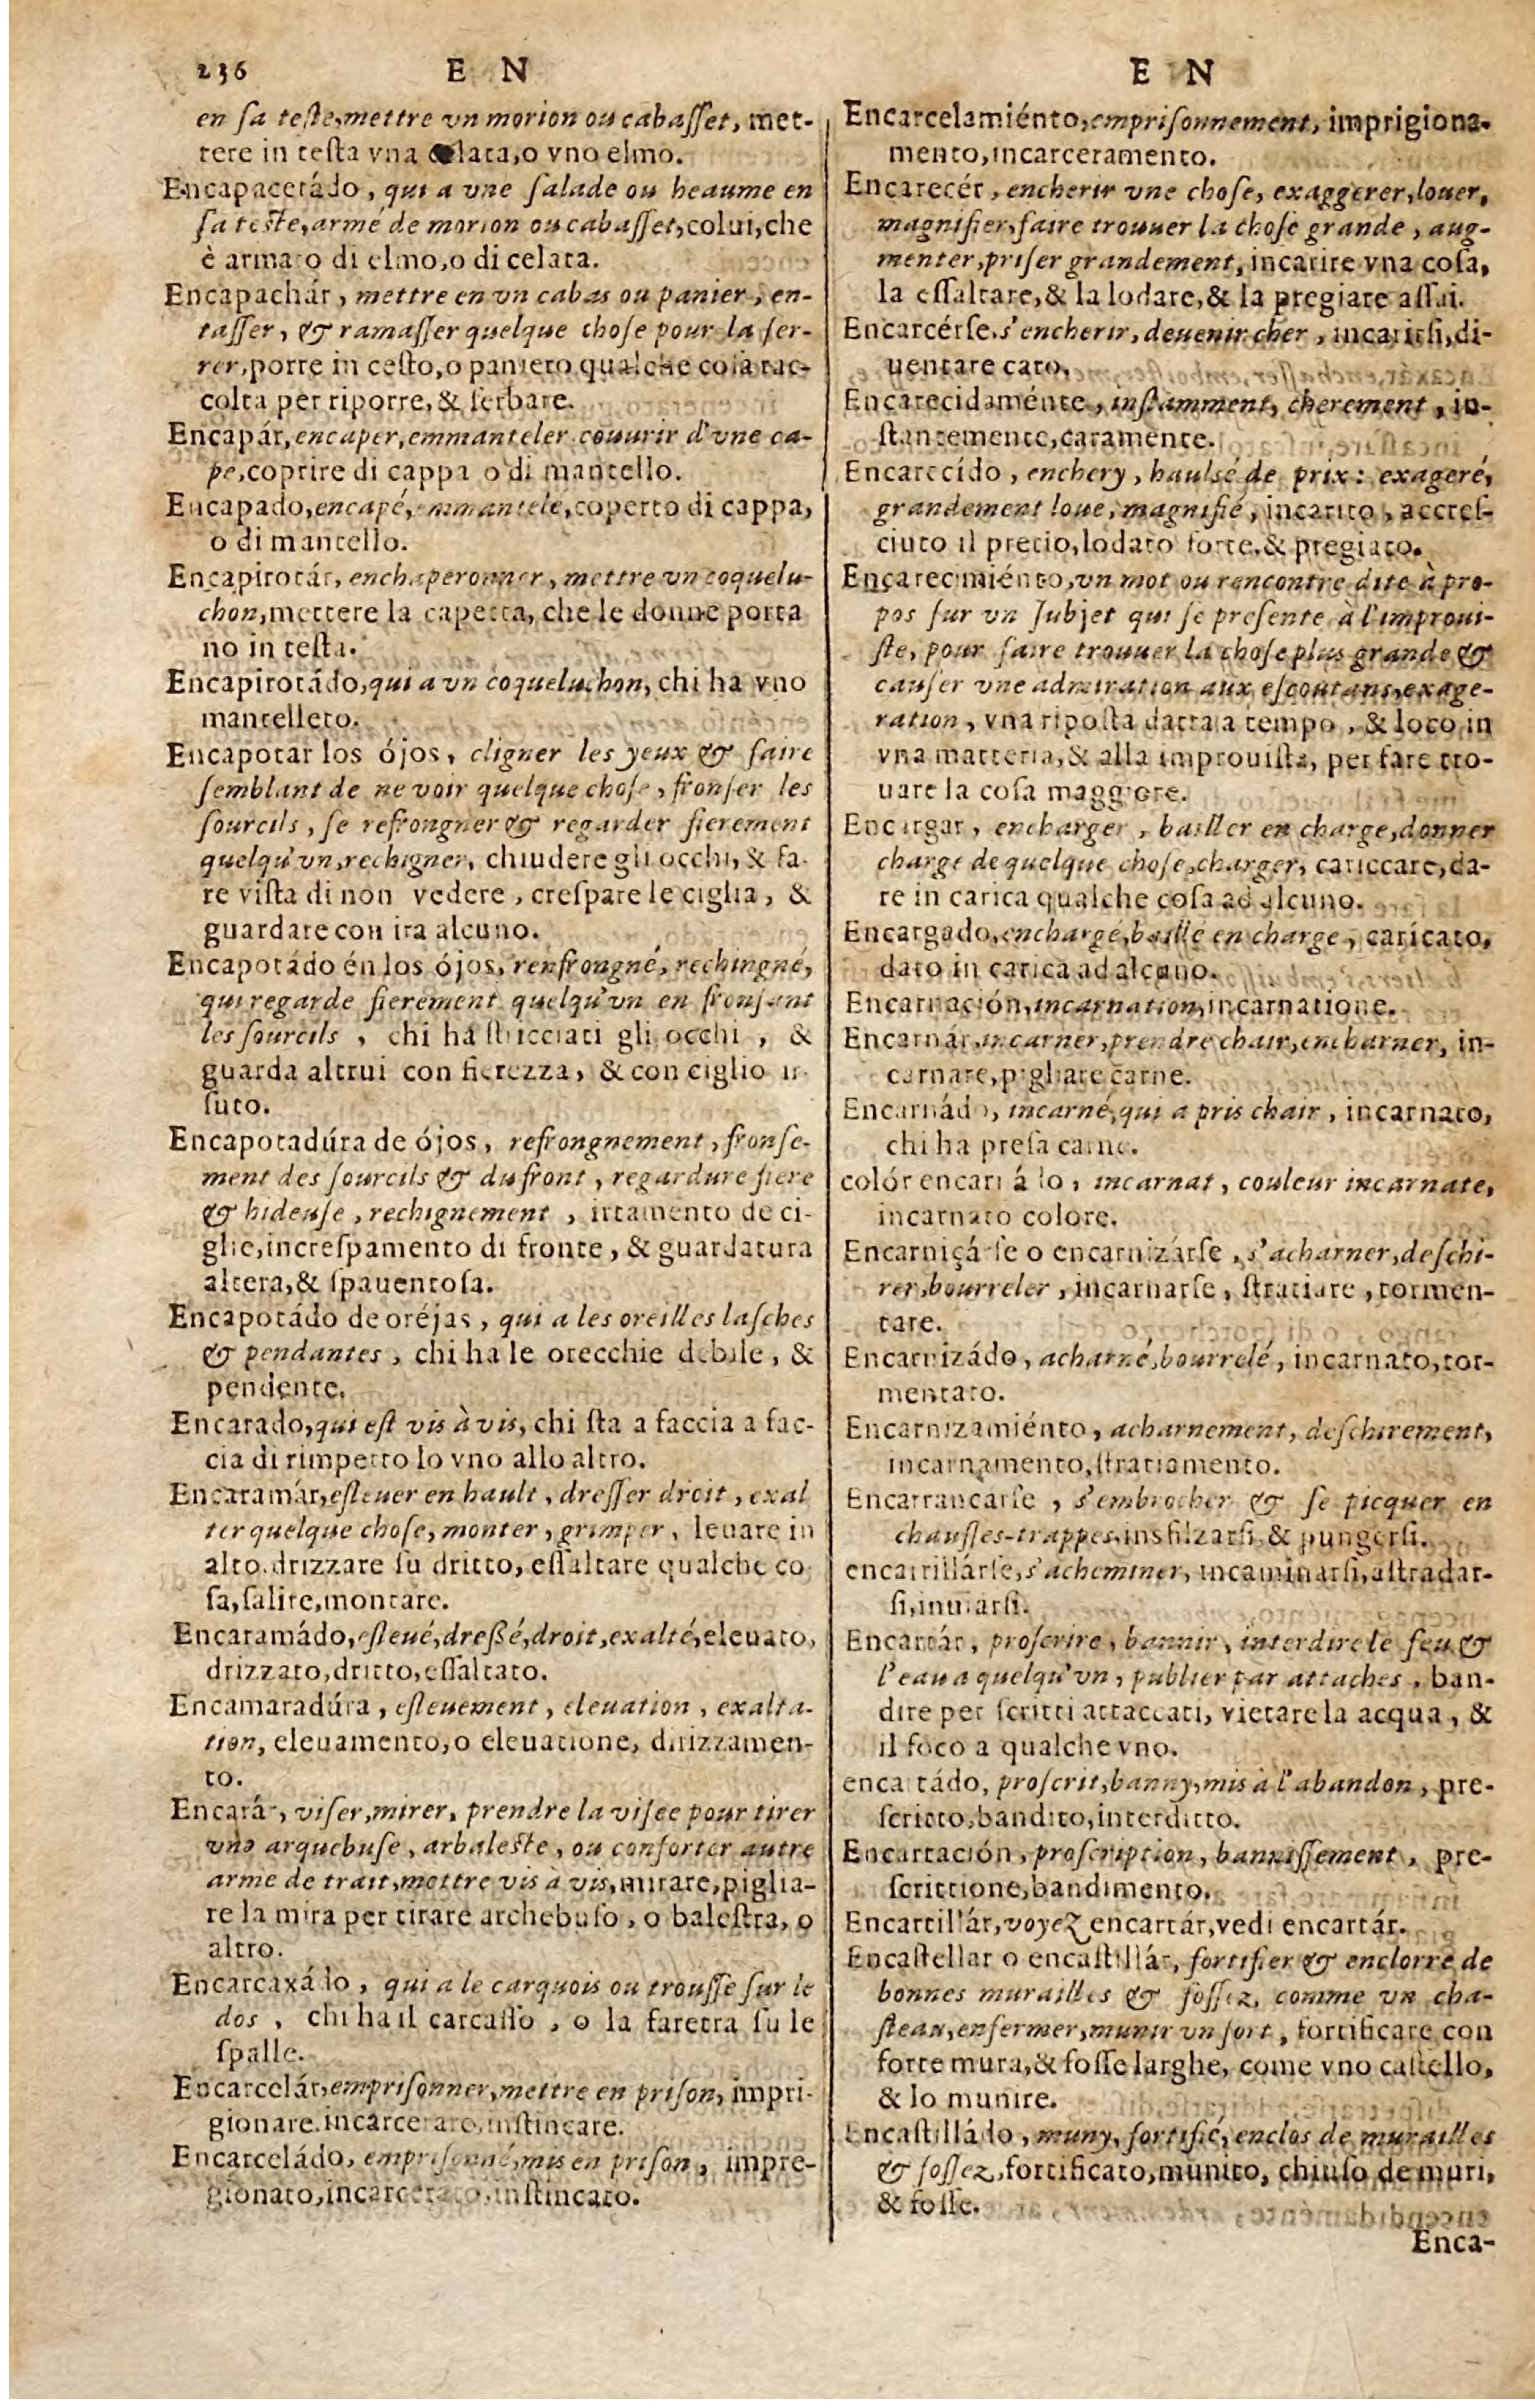 236 E N
en ſa teſte, mettre vn morion ou cabaſſet, met-
tere in teſta vna celata, o vno elmo.
Encapacetádo, qui a vne ſalade ou heaume en
ſa teſte, armé de morion ou cabaſſet, colui, che
è armato di elmo, o di celata.
Encapachár, mettre en vn cabas ou panier, en-
taſſer, & ramaſſer quelque choſe pour la ſer-
rer, porre in ceſto, o paniero qualche coſa rac-
colta per riporre, & ſerbare.
Encapár, encaper, emmanteler couurir d'vne ca-
pe, coprire di cappa o di mantello.
Encapado, encapé, emmantelé, coperto di cappa,
o di mantello.
Encapirotár, enchaperonner, mettre vn coquelu-
chon, mettere la capetta, che le donne porta
no in teſta.
Encapirotádo, qui a vn coqueluchon, chi ha vno
mantelleto.
Encapotar los ójos, cligner les yeux & faire
ſemblant de ne voir quelque choſe, fronſer les
ſourcils, ſe refrongner & regarder fierement
quelqu'vn, rechigner, chiudere gli occhi, & fa-
re viſta di non vedere, creſpare le ciglia, &
guardare con ira alcuno.
Encapotádo én los ójos, renfrongné, rechingné,
qui regarde fierement quelqu'vn en fronſant
les ſourcils, chi ha ſtricciati gli occhi, &
guarda altrui con fierezza, & con ciglio ir-
ſuto.
Encapotadúra de ójos, refrongnement, fronſe-
ment des ſourcils & du front, regardure fiere
& hideuſe, rechignement, irtamento de ci-
glie, increſpamento di fronte, & guardatura
altera, & ſpauentoſa.
Encapotádo de oréjas, qui a les oreilles laſches
& pendantes, chi ha le orecchie debile, &
pendente.
Encarado, qui eſt vis à vis, chi ſta a faccia a fac-
cia di rimpetto lo vno allo altro.
Encaramár, eſleuer en hault, dreſſer droit, exal
ter quelque choſe, monter, grimper, leuare in
alto. drizzare ſu dritto, eſſaltare qualche co
ſa, ſalire, montare.
Encaramádo, eſleué, dreßé, droit, exalté, eleuato,
drizzato, dritto, eſſaltato.
Encamaradúra, eſleuement, eleuation, exalta-
tion, eleuamento, o eleuatione, dirizzamen-
to.
Encarár, viſer, mirer, prendre la viſee pour tirer
vne arquebuſe, arbaleſte, ou conforter autre
arme de trait, mettre vis à vis, mirare, piglia-
re la mira per tirare archebuſo, o baleſtra, o
altro.
Encarcaxádo, qui a le carquois ou trouſſe ſur le
dos, chi ha il carcaſſo, o la faretra ſu le
ſpalle.
Encarcelár, empriſonner, mettre en priſon, impri-
gionare. incarcerare, inſtincare.
Encarceládo, empriſonné, mis en priſon, impre-
gionato, incarcerato, inſtincato.
E N
Encarcelamiénto, empriſonnement, imprigiona-
mento, incarceramento.
Encarecér, encherir vne choſe, exaggerer, louer,
magnifier, faire trouuer la choſe grande, aug-
menter, priſer grandement, incarire vna coſa,
la eſſaltare, & la lodare, & la pregiare aſſai.
Encarcérſe. s'encherir, deuenir cher, incarirſi, di-
uentare caro.
Encarecidaménte, inſtamment, cherement, in-
ſtantemente, caramente.
Encarecído, enchery, haulsé de prix: exageré,
grandement loue, magnifié, incarito, accreſ-
ciuto il precio, lodato forte, & pregiato.
Encarecimiénto, vn mot ou rencontre dite à pro-
pos ſur vn ſubjet qui ſe preſente à l'improui-
ſte, pour faire trouuer la choſe plus grande &
cauſer vne admiration aux eſcoutans, exage-
ration, vna ripoſta datta a tempo, & loco in
vna matteria, & alla improuiſta, per fare tro-
uare la coſa maggiore.
Encargar, encharger, bailler en charge, donner
charge de quelque choſe, charger, cariccare, da-
re in carica qualche coſa ad alcuno.
Encargado, enchargé, baillé en charge, caricato,
dato in carica ad alcuno.
Encarnación, incarnation, incarnatione.
Encarnár, incarner, prendre chair, embarner, in-
carnare, pigliare carne.
Encarnádo, incarné, qui a pris chair, incarnato,
chi ha preſa carne.
colór encarnádo, incarnat, couleur incarnate,
incarnato colore.
Encarniçárſe o encarnizárſe, s'acharner, deſchi-
rer, bourreler, incarnarſe, ſtratiare, tormen-
tare.
Encarnizádo, acharné, bourrelé, incarnato, tor-
mentato.
Encarnizamiénto, acharnement, deſchirement,
incarnamento, ſtratiamento.
Encarrancarſe, s'embrocher & ſe picquer en
chauſſes-trappes. insfilzarſi, & pungerſi.
encarrillárſe, s'acheminer, incaminarſi, aſtradar-
ſi, inuiarſi.
Encartár, proſcrire, bannir, interdire le feu &
l'eau a quelqu'vn, publier par attaches, ban-
dire per ſcritti attaccati, vietare la acqua, &
il foco a qualche vno.
encartádo, proſcrit, banny, mis à l'abandon, pre-
ſcritto, bandito, interditto.
Encartación, proſcription, banniſſement, pre-
ſcrittione, bandimento.
Encartillár, voyez encartár, vedi encartár.
Encaſtellar o encaſtillár, fortifier & enclorre de
bonnes murailles & foſſez, comme vn cha-
ſteau, enfermer, munir vn fort, fortificare con
forte mura, & foſſe larghe, come vno caſtello,
& lo munire.
Encaſtilládo, muny, fortifié, enclos de murailles
& foſſez, fortificato, munito, chiuſo de muri,
& foſſe.
Enca-